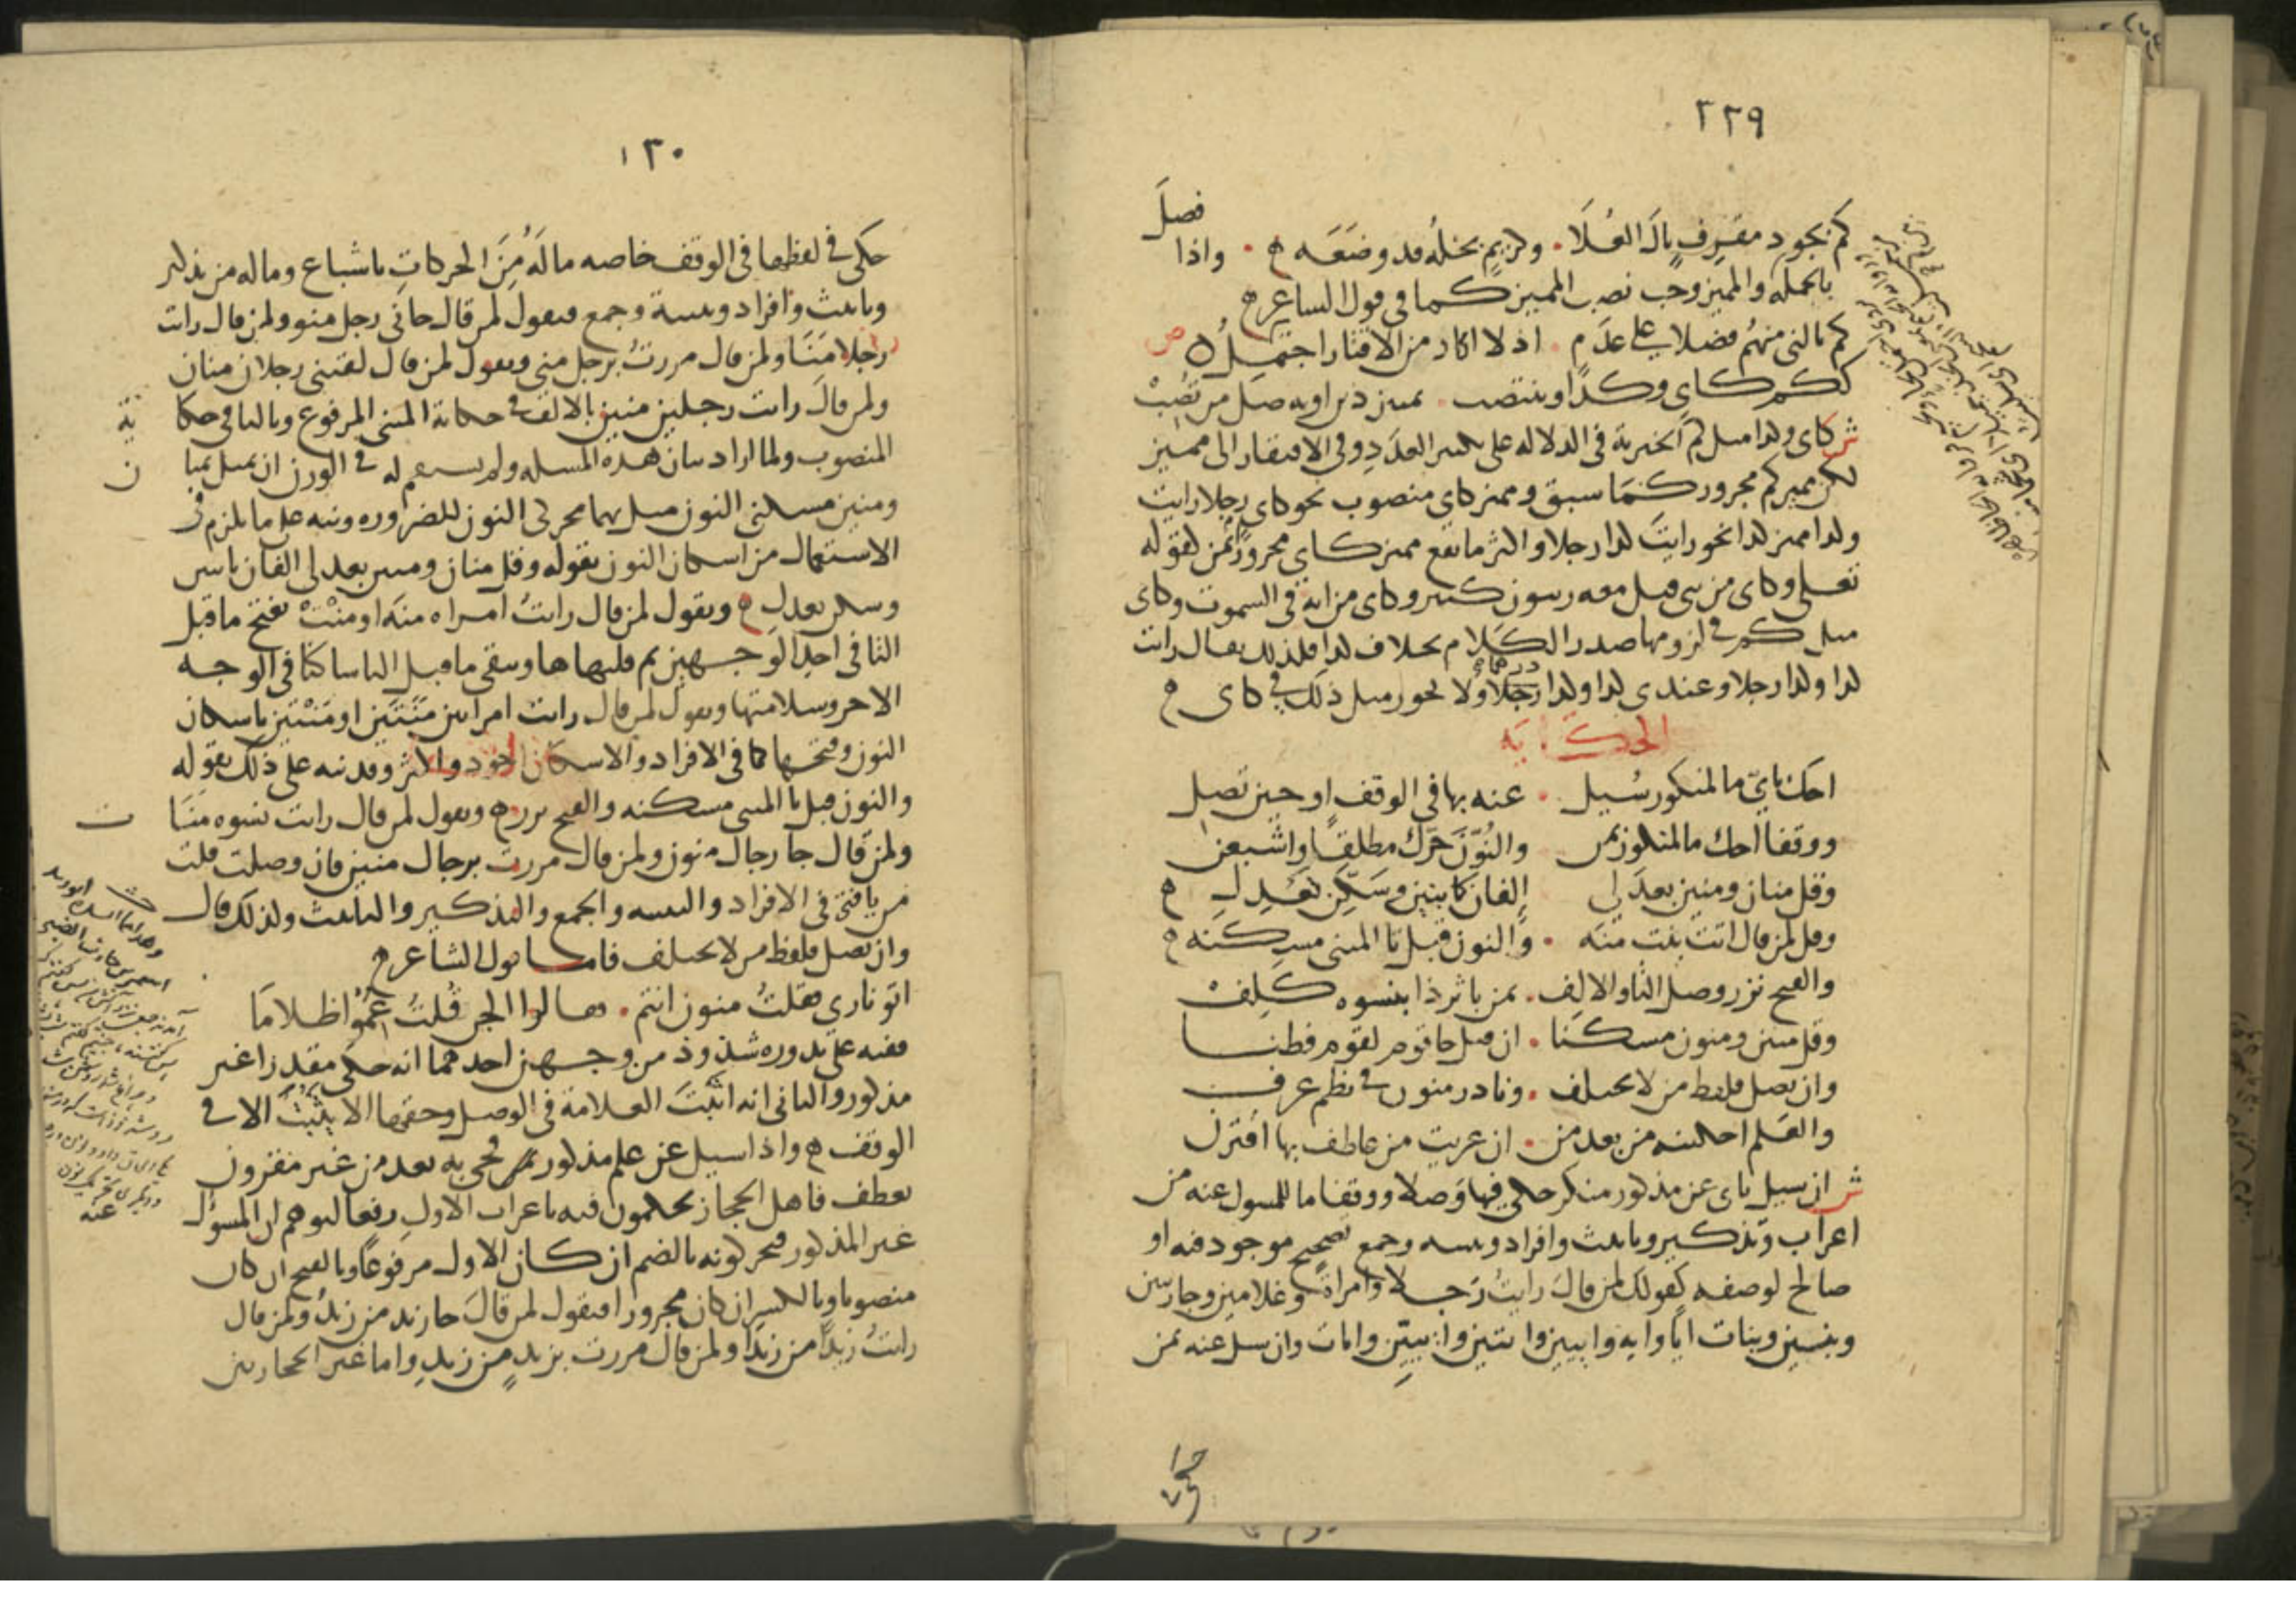 ٢٢٩
فصل
كم بجود مقرف نال العُلَا . وكريم بخله قد وضعه . واذا
بالجمله والمميز وجب نصب المميز كما فى قول الشاعر
كم نالنى منهم فضلا على عدم . اذ لا اكاد من الاقتار اجتمل ص
ككم كاي وكذا وينتصب . تمييز ذين او به صل من تصب
ش كاى وكذا مثل كم الخبرية فى الدلالة على تكثير العدد وفى الافتقار الى مميز
لكن مميز كم مجرور كما سبق ومميز كاى منصوب نحو كاى رجلا رايت
وكذا مميز كذا نحو رايت كذا رجلا واكثر ما يقع مميز كاى مجرورا بمن كقوله
تعلى وكاى من نبى قتل معه ربيون كثير وكاى من اية فى السموت وكاى
مثل كم فى لزومها صدر الكلام بخلاف كذا فلذلك يقال رايت
كذا وكذا رجلا وعندى كذا وكذا رجلا ولا يجوز مثل ذلك فى كاى
درهما
الحكاية
احك باى ما لمنكور سُيل . عنه بها فى الوقف او حين تصل
ووقفا احك ما لمنكور بمن والنون حرك مطلقا واشبعن
وقل منان ومنين بعد لى الفان كابنين وسكن تعدل
وقل لمن قال اتت بنت منه . والنون قبل تا المثنى مسكنه
والفتح نزر وصل التا والالف . بمن باثر ذا بنسوه كلف
وقل منون ومنين مسكنا . ان قيل جا قوم لقوم فطنا
وان تصل فلفظ من لا يختلف . ونادر منون فى نظم عرف
والعلم احكينه من بعد من . ان عريت من عاطف بها اقترن
ش ان سيل باى عن مذكور منكر حكى فيها وصلا ووقفا ما للمسول عنه من
اعراب وتذكير وتانيث وافراد وتثنيه وجمع تصحيح موجود فيه او
صالح لوصفه كقولك لمن قال رايت رجلا وامراة وغلامين وجاريتين
وبنين وبنات ايا واية وايين وايتين وايين وايات وان سيل عنه بمن
حكى
١٣٠
حكى فى لفظها فى الوقف خاصه ما له من الحركات باشباع وما له من تذكير
وتانيث وافراد وتثنية وجمع فتقول لمن قال جانى رجل منو ولمن قال رايت
رجلا مَنَا ولمن قال مررت برجل منى وتقول لمن قال لقينى رجلان منان
ولمن قال رايت رجلين منين بالالف فى حكاية المثنى المرفوع وباليا فى حكاية
المنصوب ولما اراد بيان هذه المسله ولم يستقم له فى الوزن ان يمثل بمنان
ومنين مسكنى النون مثل بهما محركى النون للضروره ونبه على ما يلزم فى
الاستعمال من اسكان النون بقوله وقل منان ومنين بعد لى الفان بابنين
وسكن تعدل وتقول لمن قال رايت امراه منه او منت بفتح ما قبل
التا فى احد الوجهين ثم قلبها ها وتبقى ما قبل التا ساكنا فى الوجه
الاخر وسلامتها وتقول لمن قال رايت امراتين منتين او منتين باسكان
النون وفتحها كما فى الافراد والاسكان اجود واكثر وقد نبه على ذلك بقوله
والنون قبل تا المثنى مسكنه والفتح نزر وتقول لمن قال رايت نسوه منات
ولمن قال جا رجال منون ولمن قال مررت برجال منين فان وصلت قلت
من يا فتى فى الافراد والتثنيه والجمع والتذكير والتانيث ولذلك قال
وان تصل فلفظ من لا يختلف فاما قول الشاعر
اتو نارى فقلت منون انتم . فقالوا الجن قلت عموا ظلاما
ففيه على ندوره شذوذ من وجهين احدهما انه حكى مقدرا غير
مذكور والثانى انه اثبت العلامة فى الوصل وحقها الا يثبت الا فى
الوقف واذا سيل عن علم مذكور لم يجى به بعد من غير مقرون
بعطف فاهل الحجاز يحكمون فيه باعراب الاول رفعا لتوهم ان المسؤل
غير المذكور فيحركونه بالضم ان كان الاول مرفوعا وبالفتح ان كان
منصوبا وبالكسر ان كان مجرورا فتقول لمن قال جا زيد من زيد ولمن قال
رايت زيدا من زيدا ولمن قال مررت بزيد من زيد واما غير الحجازيين